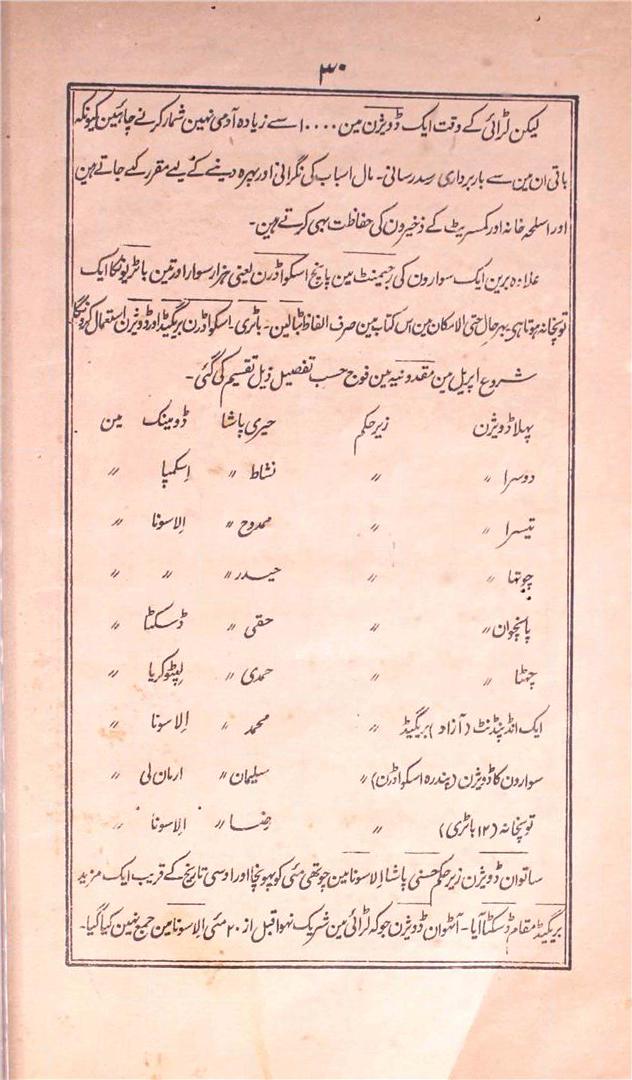 ۳۰
لیکن لڑائی کے وقت ایک ڈویژن مین ۱۰۰۰۰ سے زیادہ آدمی نہین شمار کرنے چاہئین کیونکہ
باقی ان مین سے باربرداری رسد رسانی۔ مال اسباب کی نگرانی اور پہرہ دینے کے لیے مقرر کیے جاتے ہین
اور اسلحہ خانہ اور کمسریٹ کے ذخیرون کی حفاظت بھی کرتے ہین۔
علاوہ برین ایک سوارون کی رجیمنٹ مین پانچ اسکواڈرن یعنی ہزار سوار اور تین باٹریونکا ایک
توپخانہ ہوتا ہی بہرحال حتی الامکان مین اس کتاب مین صرف الفاظ بٹالین۔ باٹری۔ اسکواڈرن بریگیڈ اور ڈویژن استعمال کرونگا
شروع اپریل مین مقدونیہ مین فوج حسب تفصیل ذیل تقسیم کی گئی۔
پہلا ڈویژن زیر حکم حیری پاشا ڈومینک مین
دوسرا 〃 〃 نشاط 〃 اسکمپا 〃
تیسرا 〃 〃 ممدوح 〃 الاسونا 〃
چوتھا 〃 〃 حیدر 〃 〃 〃
پانچوان 〃 〃 حقی 〃 ڈسکٹا 〃
چھٹا 〃 〃 حمدی 〃 لپٹوکریا 〃
ایک انڈپنڈنٹ (آزاد) بریگیڈ 〃 محمد 〃 الاسونا 〃
سوارون کا ڈویژن (پندرہ اسکواڈرن) 〃 سلیمان 〃 ارمان لی 〃
توپخانہ (۱۲ باٹری) 〃 رضا 〃 الاسونا 〃
ساتوان ڈویژن زیر حکم حسنی پاشا الاسونا مین چوتھی مئی کو پہونچا اور اوسی تاریخ کے قریب ایک مزید
بریگیڈ مقام ڈسکٹا آیا۔ آٹھوان ڈویژن جو کہ لڑائی مین شریک نہوا قبل از ۲۰ مئی الاسونا مین جمع نہین کیا گیا۔